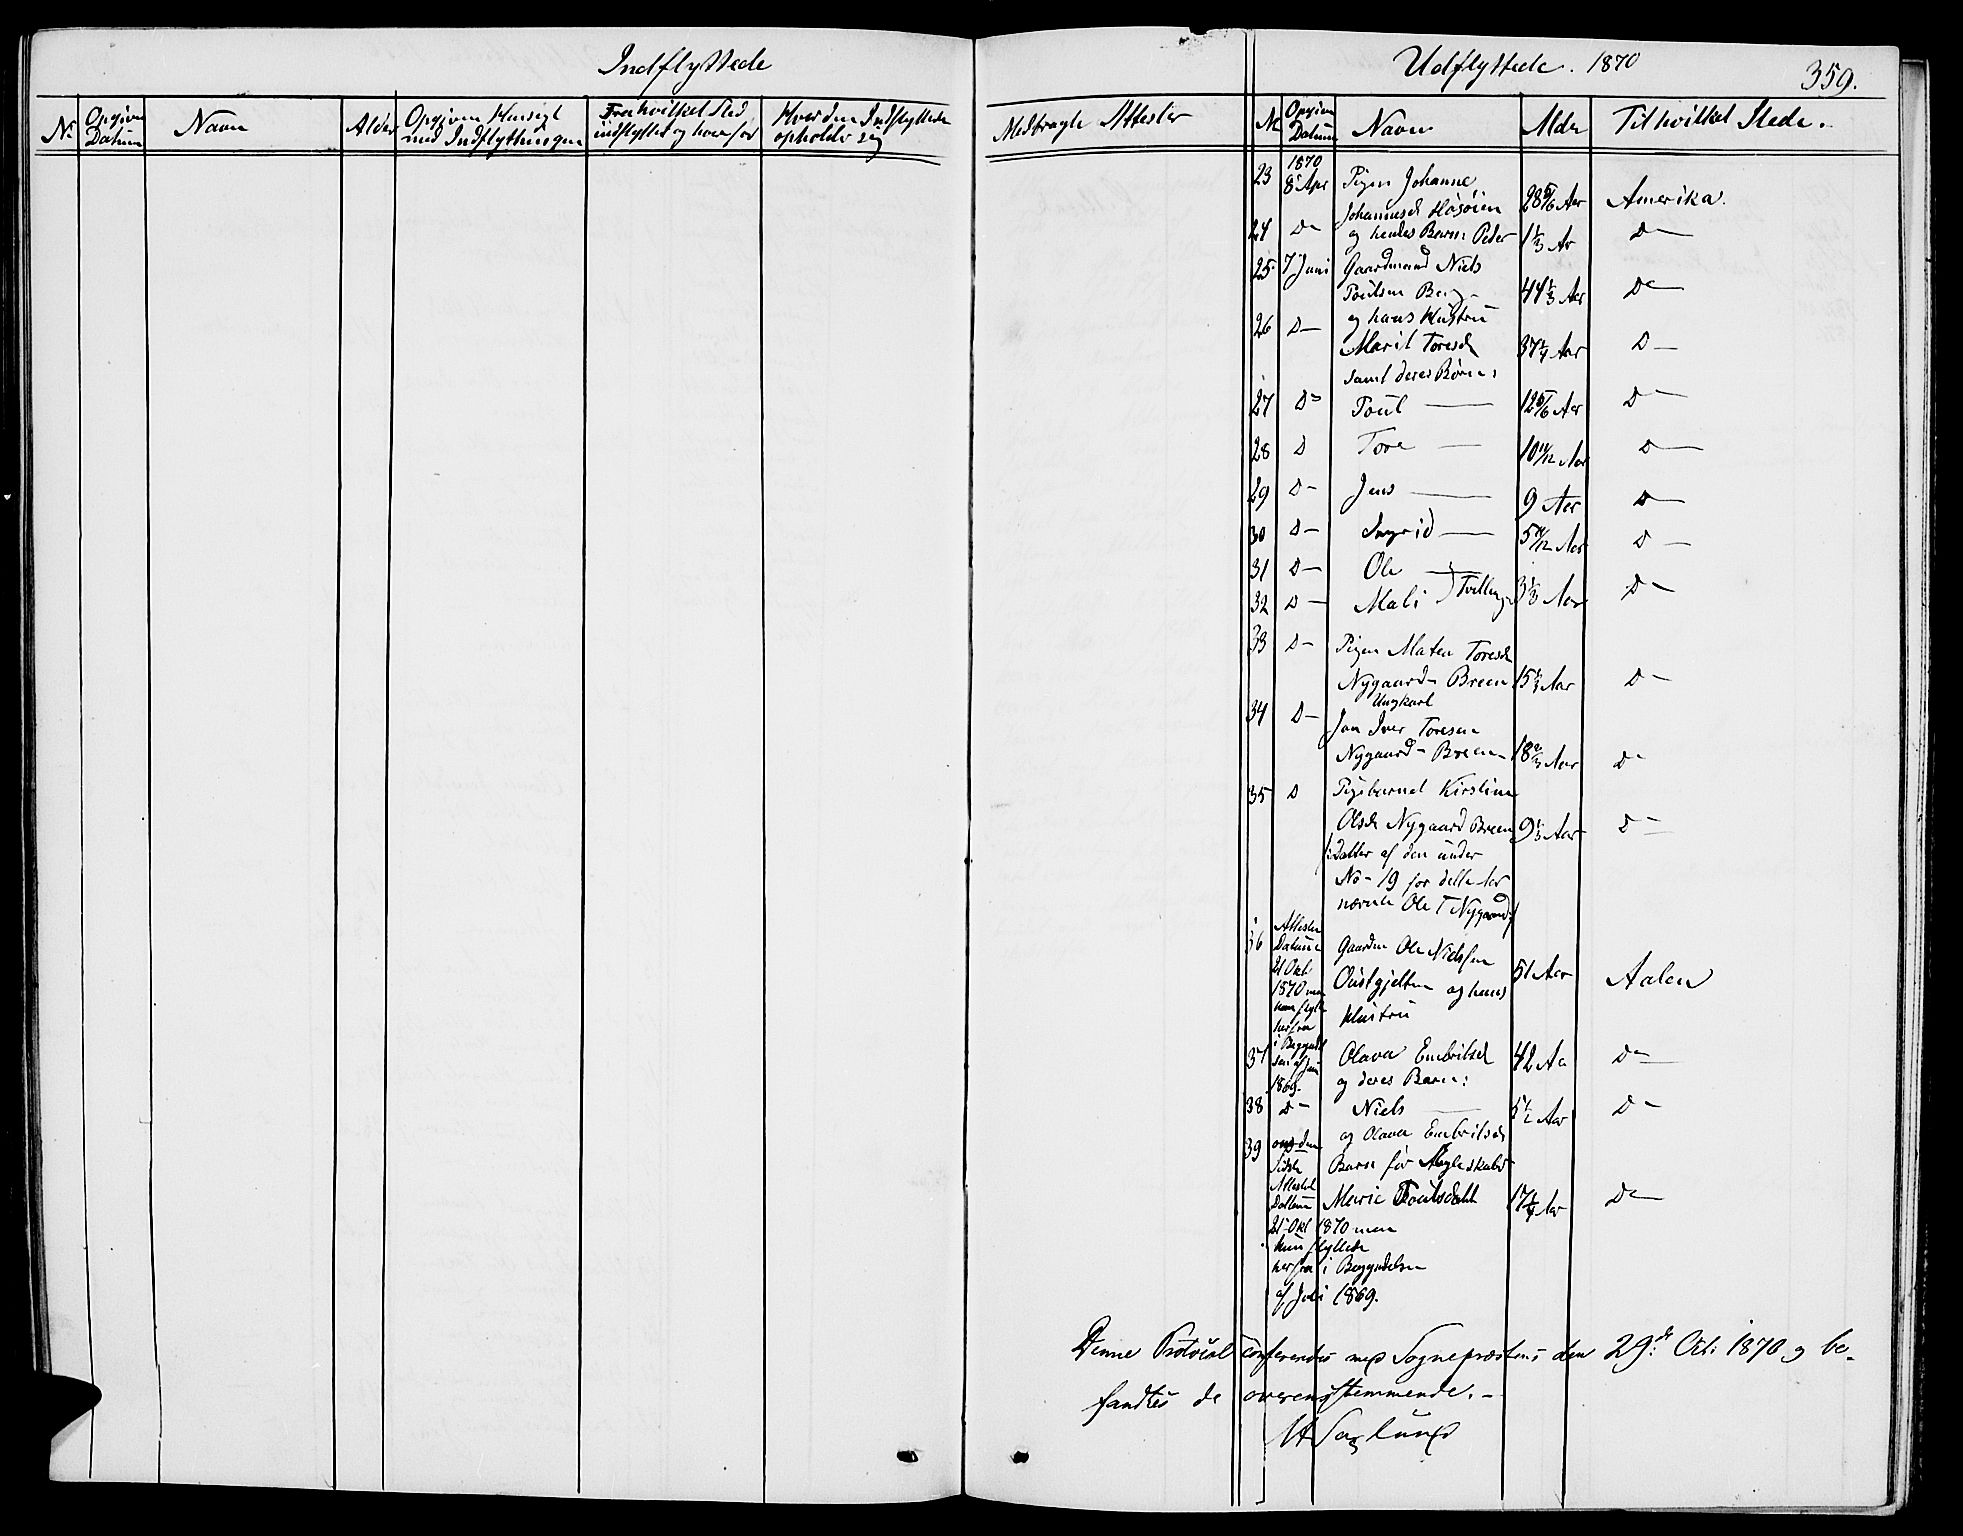 Indflyttede
Udflyttede. 1870
359.
No
Opgiven Datum
Navn
Alder
Opgiven Hensigt med Indflytningen
Fra hvilket Sted indflyttet og hvorfor
Hvor den Indflyttede opholder sig
Medbragte Attester
No
Opgiven Datum
Navn
Alder
Til hvilket Sted.
23 1870 8 Apr Pigen Johanne
Johannesd Høsøien 28 5/6 Aar Amerika.
24 Do og hendes Barn: Peder 1 1/3 Ar Do
25 7 Juni Gaardmand Niels
Poulsen Berg 44 1/3 Aar Do
26 Do og hans Hustru
Marit Toresd 37 1/4 Aar Do
samt deres Børn:
27 Do Poul — 12 5/6 Aar Do
28 D Tore — 10 11/12 Aar Do
29 Do Jens — 9 Aar Do
30 Do Ingrid — 5 11/12 Aar Do
31 Do Ole —
32 Do Mali } Tvillinger 3 1/3 Aar Do
33 Do Pigen Maten Toresd
Nygaard-Breen 15 1/3 Aar Do
Ungkarl
34 Do Jon Iver Toresen
Nygaard-Breen 18 2/3 Aar Do
35 D Pigebarnet Kirstine
Olsd Nygaard Breen 9 1/3 Aar Do
/: Datter af den under
No 19 for dette Aar
nævnte Ole T Nygaard :/
36 Attestens Datum 21 Okt: 1870 men han flyttede herfra i Begyndelsen af Juni 1869.
Gaardm Ole Nielsen
Oustgjelten og hans 51 Aar Aalen
Hustru
37 Olava Embritsd 42 Aar Do
og deres Barn:
38 Do Niels — 5 1/2 Aar Do
og Olava Embritsd
39 Barn før Ægteskabet
Marie Poulsdatt 17 1/4 Aar Do
Attestets Datum
21 Okt 1870 men
hun flyttede
herfra i Begyndelsen
af Juli 1869.
Denne Protocol confereredes med Sognepræstens den 29de Oct: 1870 og be-
fandtes da overensstemmende. —